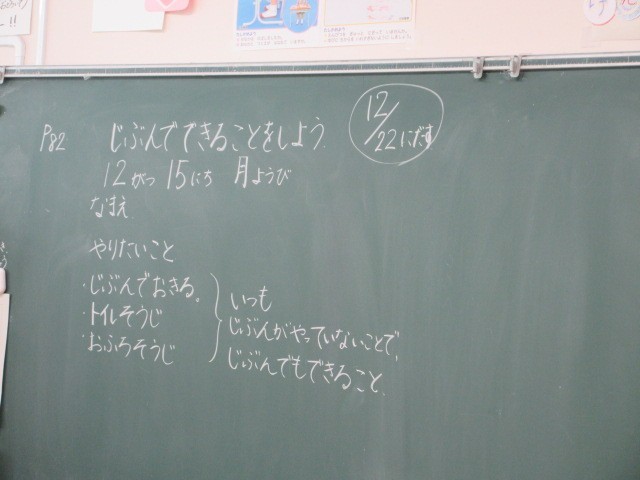 P82 じぶんでできることをしよう.
12/22にだす
12がつ 15にち 月ようび
なまえ
やりたいこと
・じぶんでおきる。
・トイレそうじ
・おふろそうじ
いつも
じぶんがやっていないことで、
じぶんでもできること.